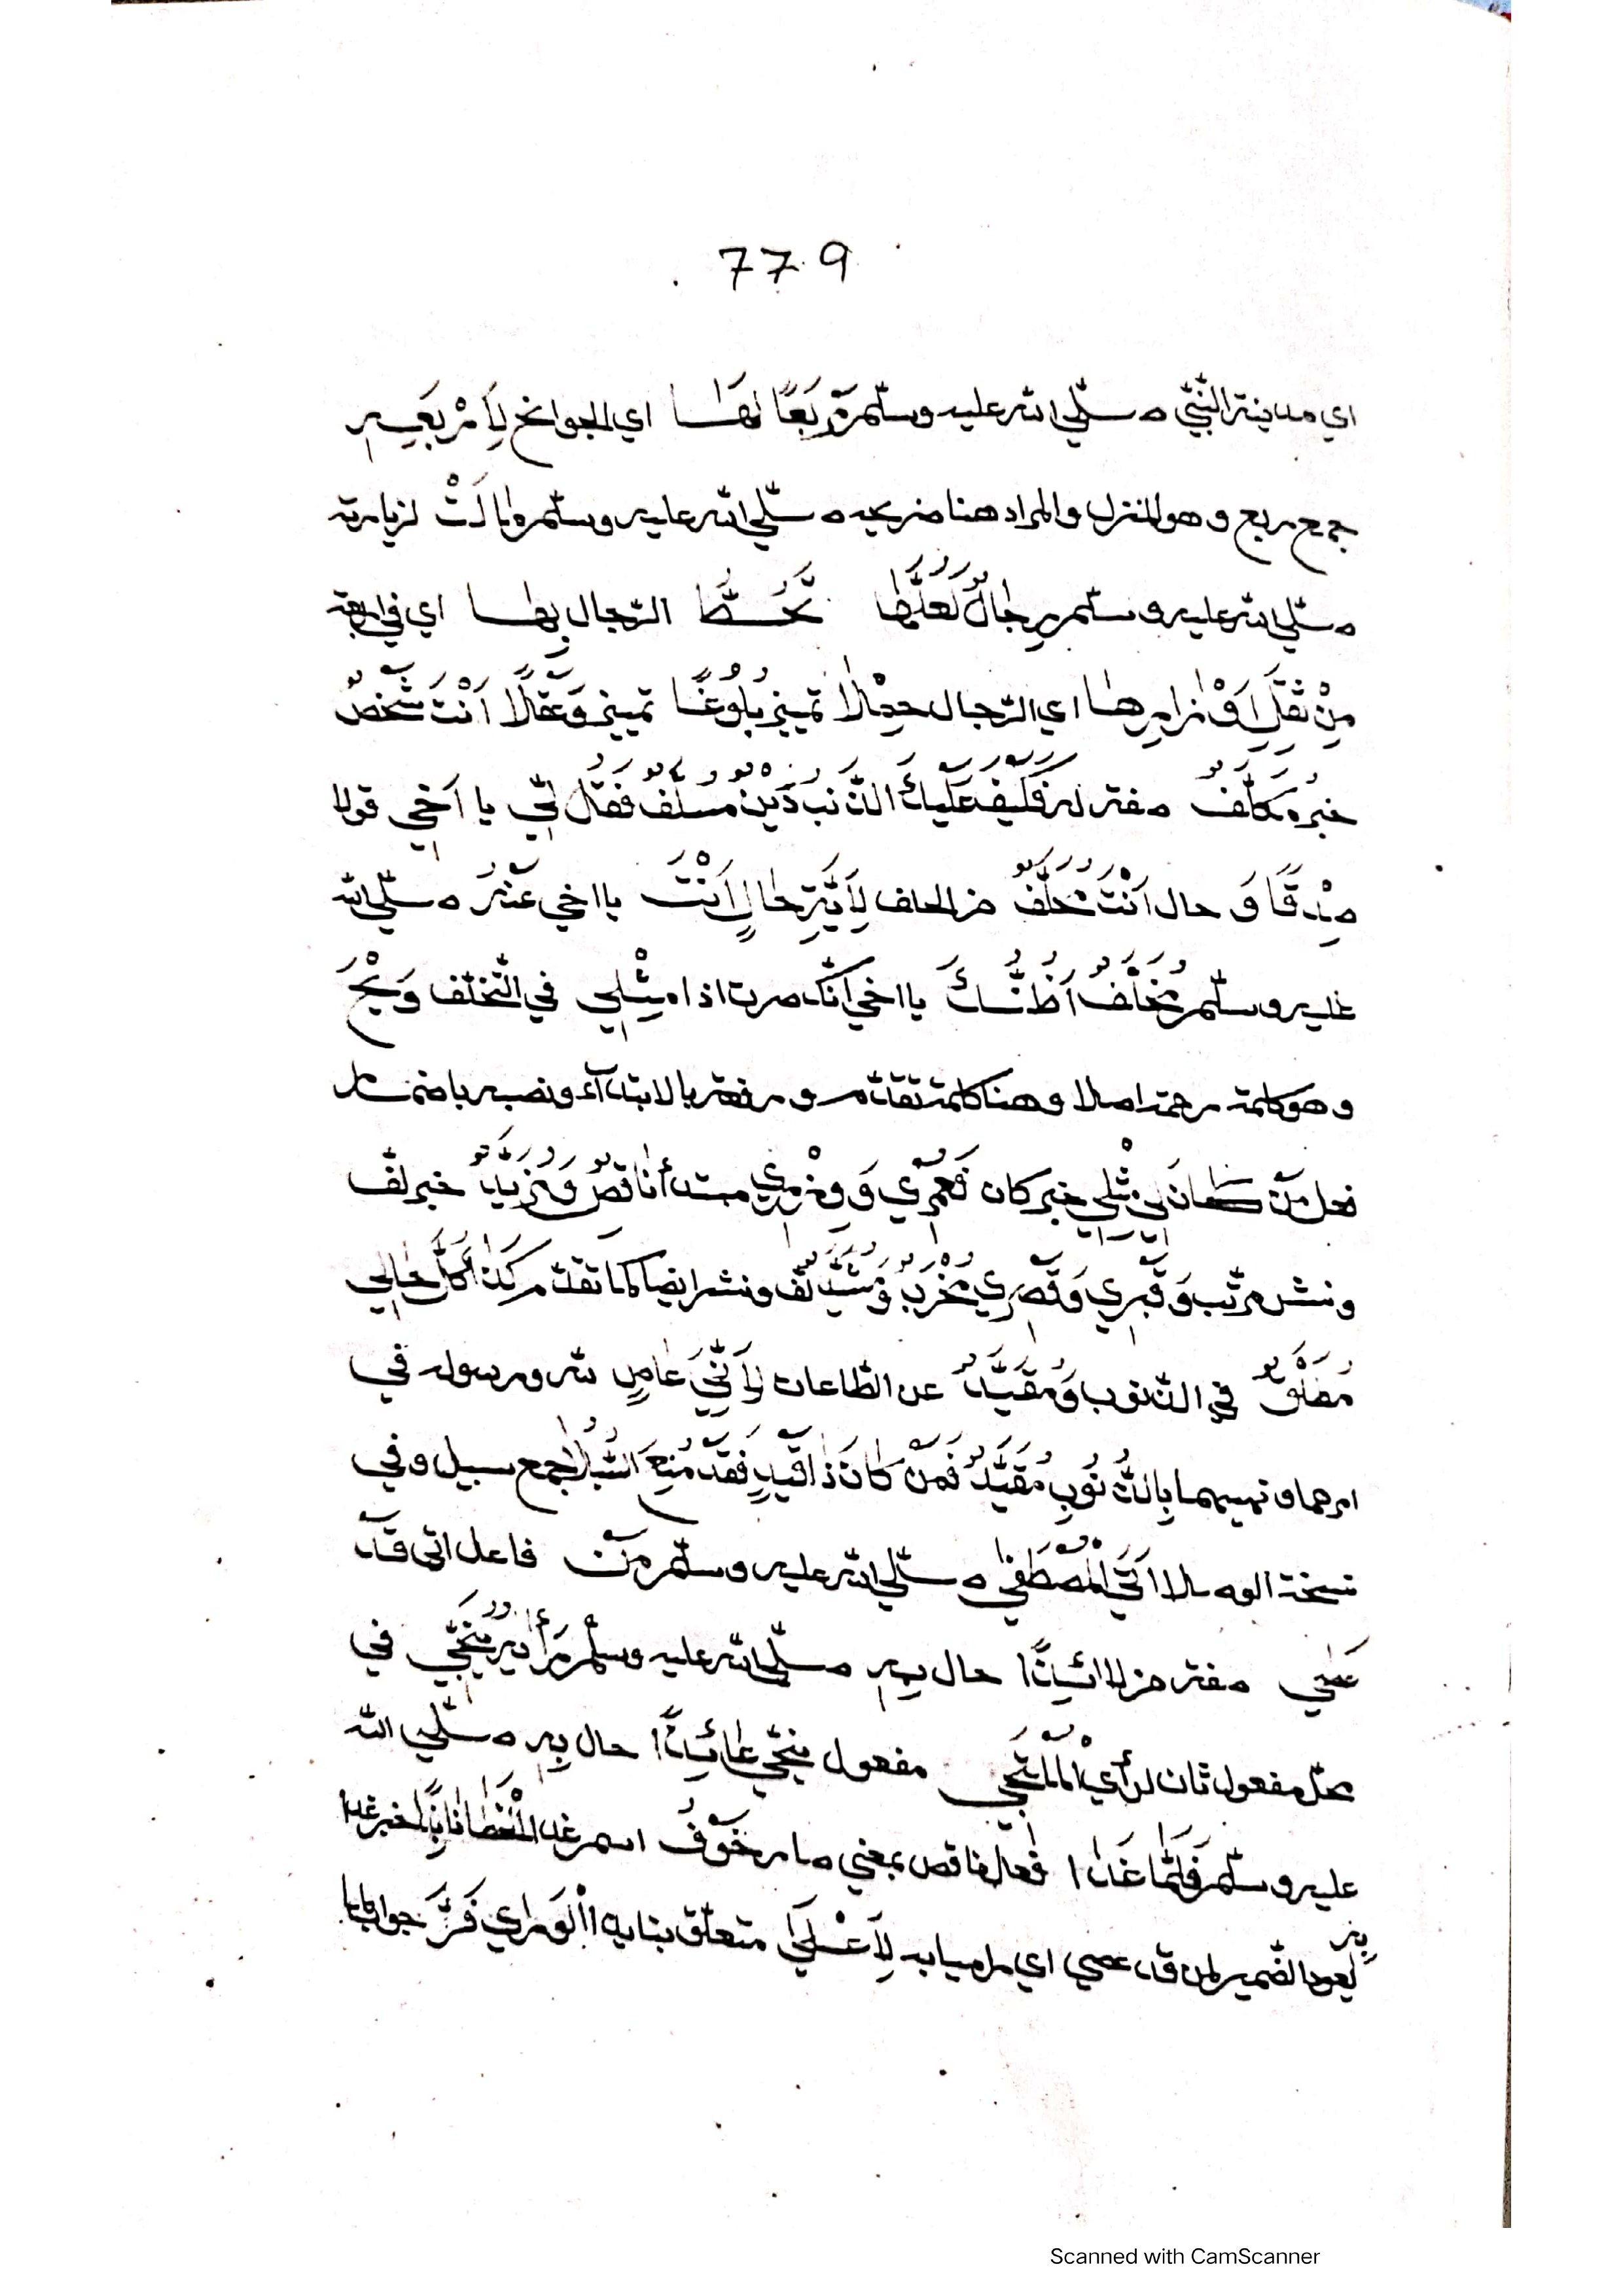 779
اي مدينة النّبيّ صلّي الله عليه وسلّم رَبَعًا لَهَا اي الجوانح لِأَمْر يَعَسِير
جمع ربع وهو المنزل والمراد هنا ضريحه صلّي الله عليه وسلّم وَمَا لَتْ لزيارته
صلّي الله عليه وسلّم رِجَالٌ لَعَلَّهَا تُحَطُّ الرّجال بِهَا اي في
مِنْ ثِقَلِ أَوْزَارِهَا اي الرّجال حِمْلًا تمييز بُلُوغًا تمييز وَعَقْلًا أَنْتَ شَخْصٌ
خبره مُكَلَّفٌ صفته له فَكَيْفَ عَلَيْكَ الذَّنْبُ دَيْنٌ مُسَلَّفٌ فَقُلْ لِي يا أَخِي قولا
صِدْقًا وَ حال أَنْتَ تَحَلَّفُ من الحلف لِأَيَّةِ حَالٍ أَنْتَ يا اخي عَنْهُ صلّي الله
عليه وسلّم مُخَلَّفٌ أَظُنُّكَ يا اخي انّك صرت اذا مِثْلِي في التّخلّف وَيْحَ
وهو كلمة رحمة اصلا وهنا كلمة تقدّم ورفعه بالابتدآء ونصبه باضمار
فعل مَنْ كَانَ لِي مِثْلِي خبر كان فَعُمْرِي وَوِزْرِي مبتدأ نَاقِصٌ وَمَزِيدٌ خبر لفّ
ونشر مرتّب وَقَبْرِي وَقَصْرِي مُخْرَبٌ وَمُشَيَّدٌ لفّ ونشر ايضا كما تقدّم كَذَا كُلُّ حَالِي
مُطْلَقٌ في الذّنوب وَمُقَيَّدٌ عن الطّاعات لِأَنِّي عَاصٍ لله ورسوله في
امرهما ونهيهما بِالذُّنُوبِ مُقَيَّدٌ فَمَنْ كَانَ ذَا قَيْدٍ فَقَدْ مُنِعَ السُّبُلَا جمع سبيل وفي
نسخة الوصلا أَتَي الْمُصْطَفَي صلّي الله عليه وسلّم مَنْ فاعل اتي قَدْ
عَصَي صفته من لا ائِيذًا حال بِهِ صلّي الله عليه وسلّم رَأَيهِ يُنَجِّي في
محلّ مفعول ثان لرأي الْمُلْتَجِي مفعول ينجّي عَائِذًا حال بِهِ صلّي الله
عليه وسلّم فَلَمَّا غَدَا فعل ناقص بمعني صار خَوْفُ اسم غدا الْخَطَا نَابِلًا خبر غدا
بِهِ يعود الضّمير لمن قد عصي اي راميا به لِأَعْلَي متعلّق بنابه الْوَرَي فَرَّ جواب لما
Scanned with CamScanner